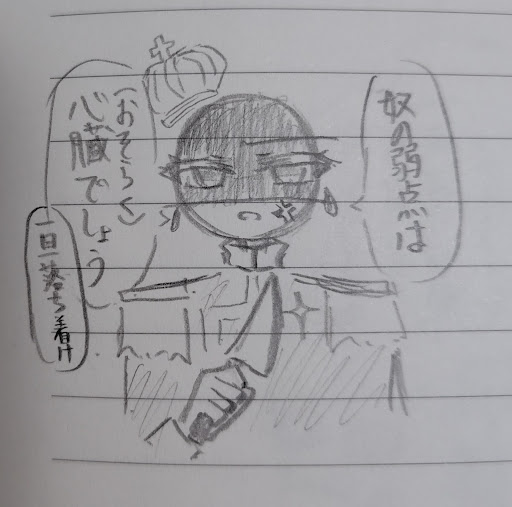 奴の弱点は
(おそらく)
心臓でしょう
一旦落ち着け